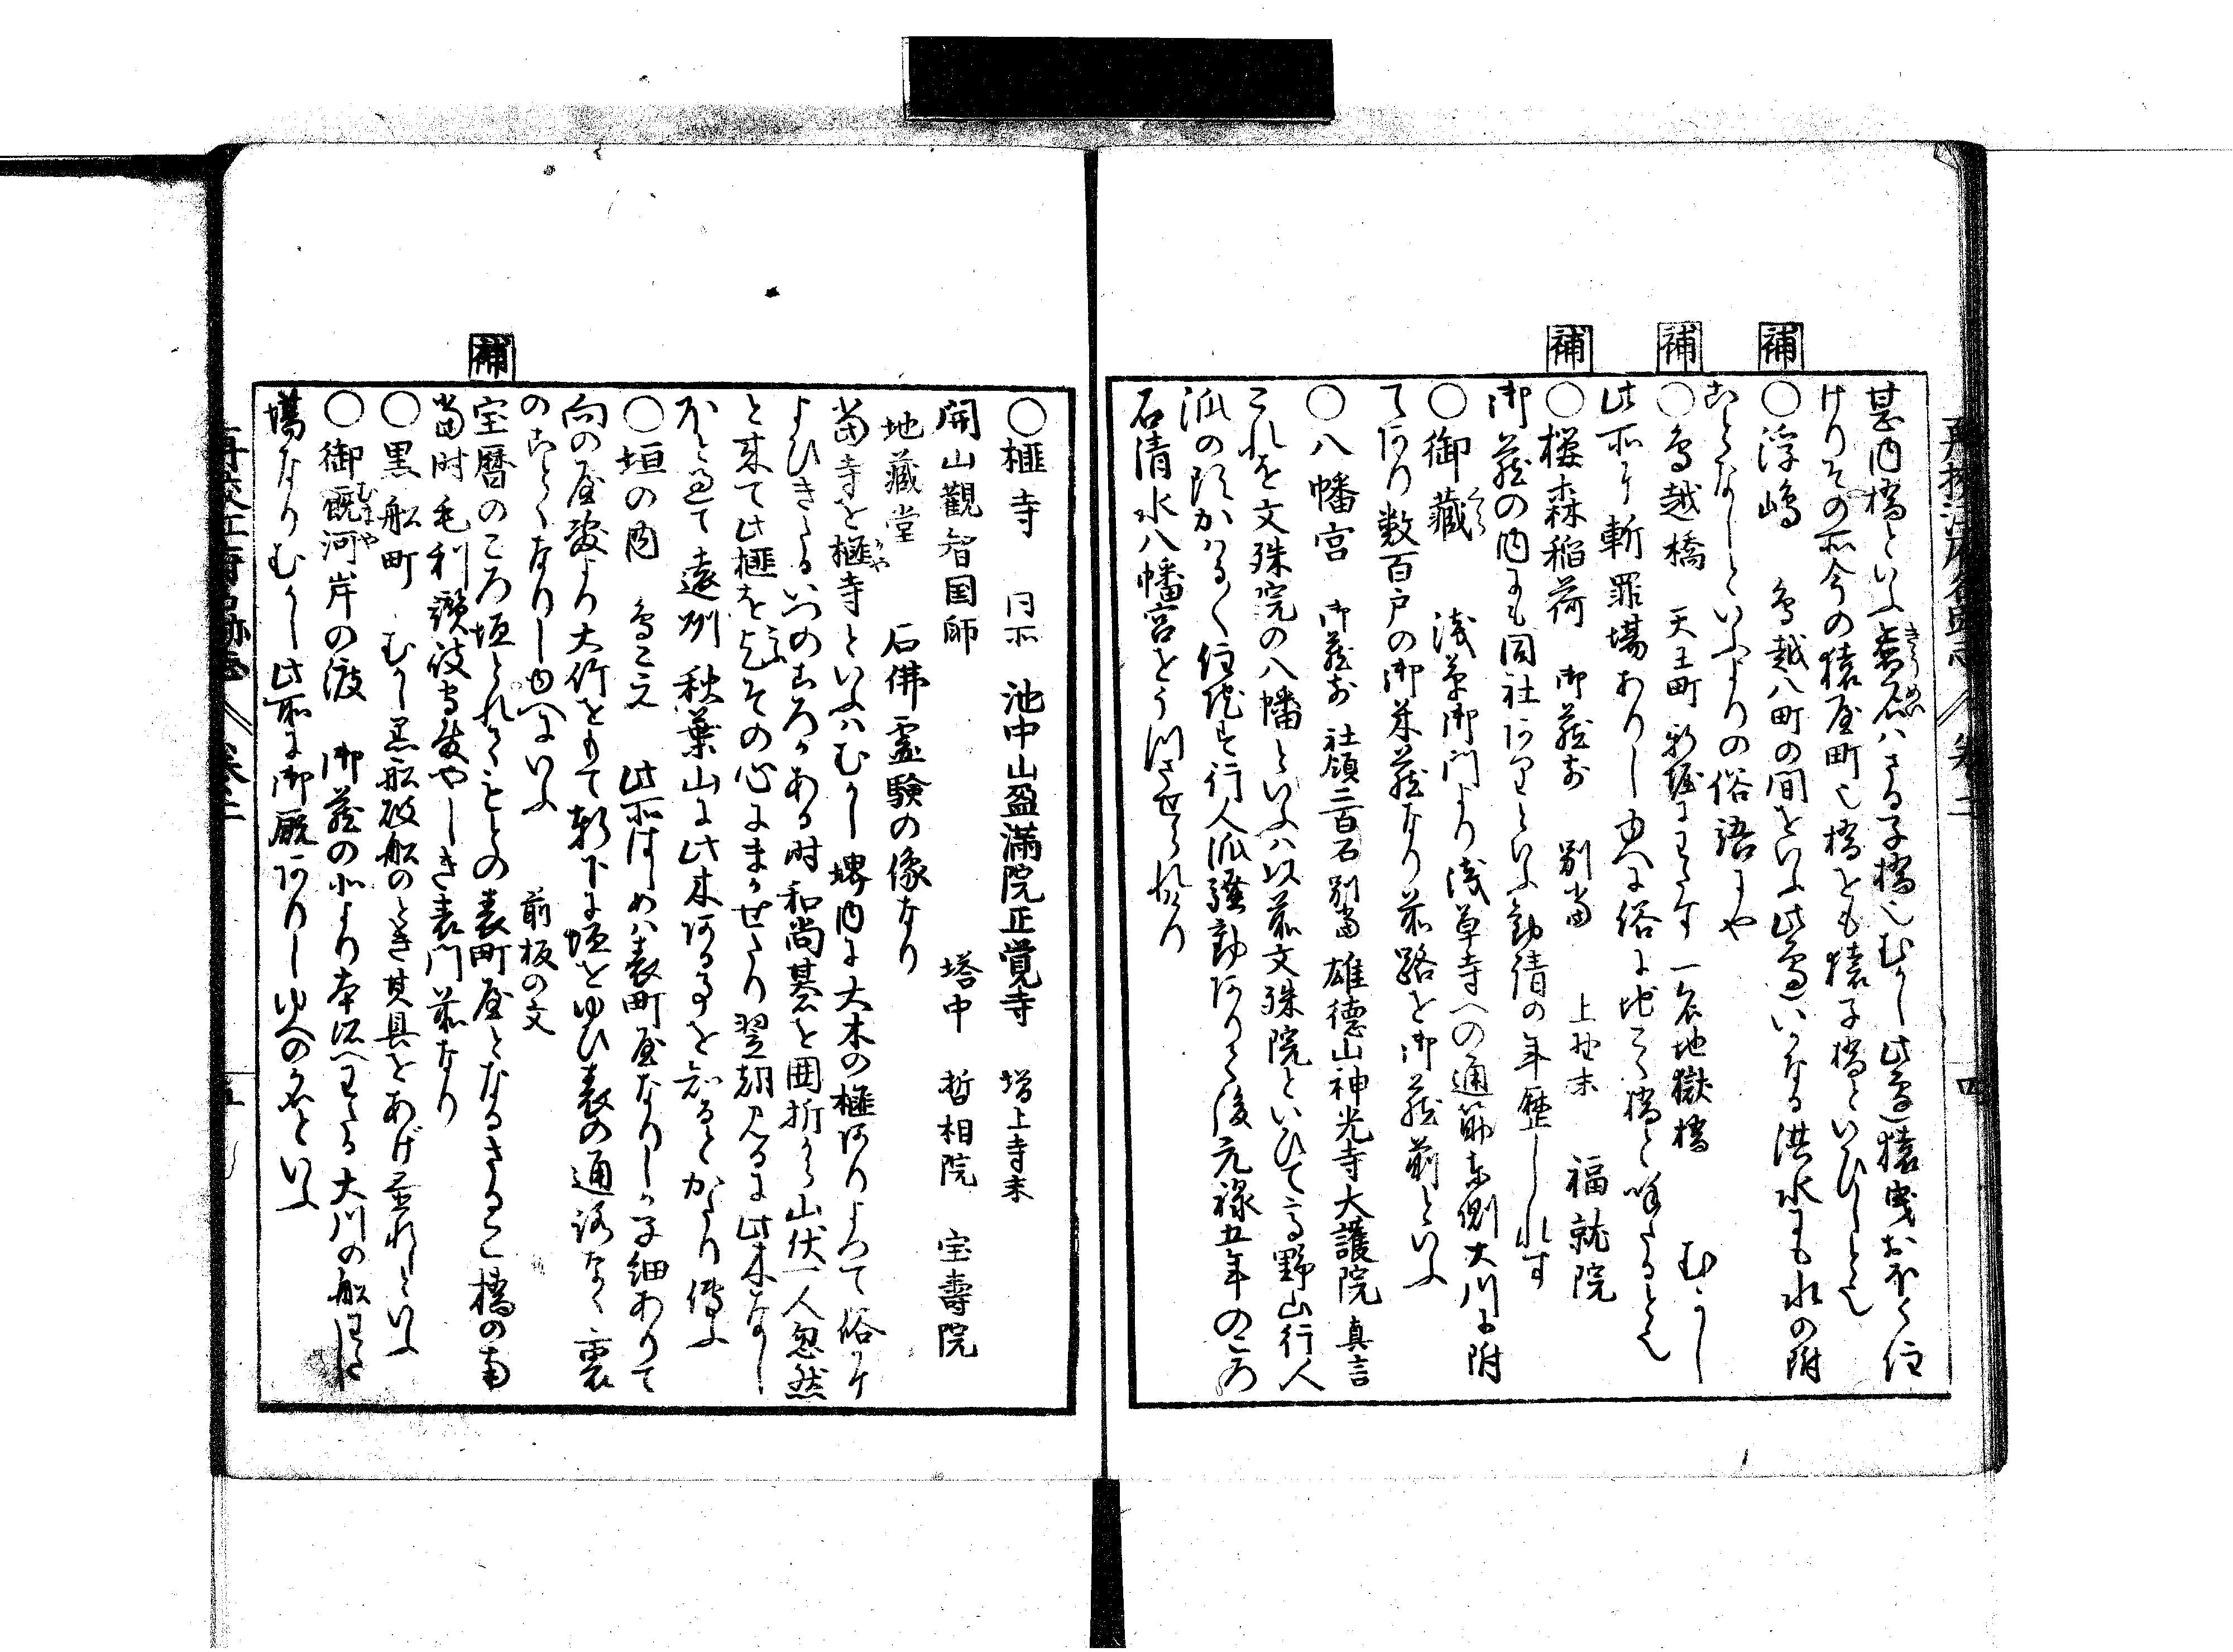 甚内橋といふ交名ハさる子橋也むかし此辺猿曳おほく住
けりその所今の猿屋町也橋をも猿子橋といひしとそ
補
○浮嶋 鳥越八町の間をいふ此辺いかなる洪水にも水の附
ことなしといふよりの俗語にや
補
○鳥越橋 天王町新堀にわたす 一名地獄橋 むかし
此所に斬罪場ありしゆへに俗に地こく橋と呼たるとそ
補
○櫻森稲荷 御蔵前 別當 上野末 福就院
御蔵の内にも同社ありといふ勧請の年歴しれす
○御藏 浅草御門より浅草寺への通筋東側大川に附
てあり数百戸の御米蔵なり前路を御蔵前といふ
○八幡宮 御蔵前 社領二百石 別當 雄德山神光寺大護院 真言
これを文殊院の八幡といふハ以前文殊院といひて高野山行人
派の住職す行人派騒動ありて後元禄五年のころ
石清水八幡宮をうつさせられけり
○榧寺 同所 池中山盈満院正覚寺 増上寺末
開山觀智国師 塔中 哲相院 宝壽院
地藏堂 石佛霊験の像なり
當寺を榧寺といふハむかし境内に大木の榧ありよつて俗に
よひきたるいつのころかある時和尚碁を囲折から山伏一人忽然
と来て此榧をこふその心にまかせたり翌朝見るに此木なし
ほと過て遠州秋葉山に此木あるを知るとかたり傳ふ
○垣の内 鳥こえ 此所はしめハ表町屋なりしか子細ありて
向の屋敷より大竹をもて軒下に垣をゆひ表の通路なく裏
のことくなりしゆへにいふ 前板の文
補
宝暦のころ垣とれてもとの表町屋となるさるこ橋の南
當时毛利讃岐守殿やしき表門前なり
○黒舩町 むかし黒舩破舩のとき其具をあげ並れしといふ
○御厩河岸の渡 御蔵の北より本所へわたる大川の舩わたし
場なりむかし此所に御厩ありしゆへの名といふ